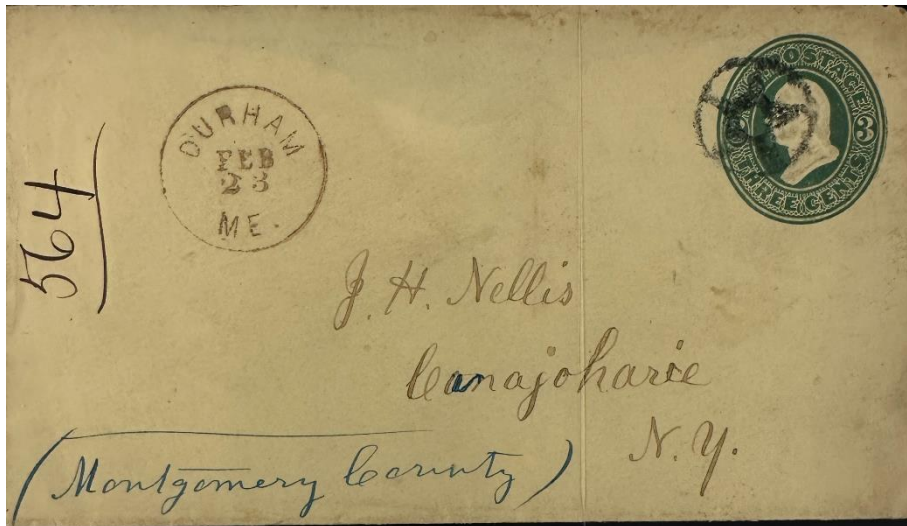 564
DURHAM
FEB
23
ME.
POSTAGE
3
THREE CENTS
J. H. Nellis
Canajoharie
N. Y.
(Montgomery County)